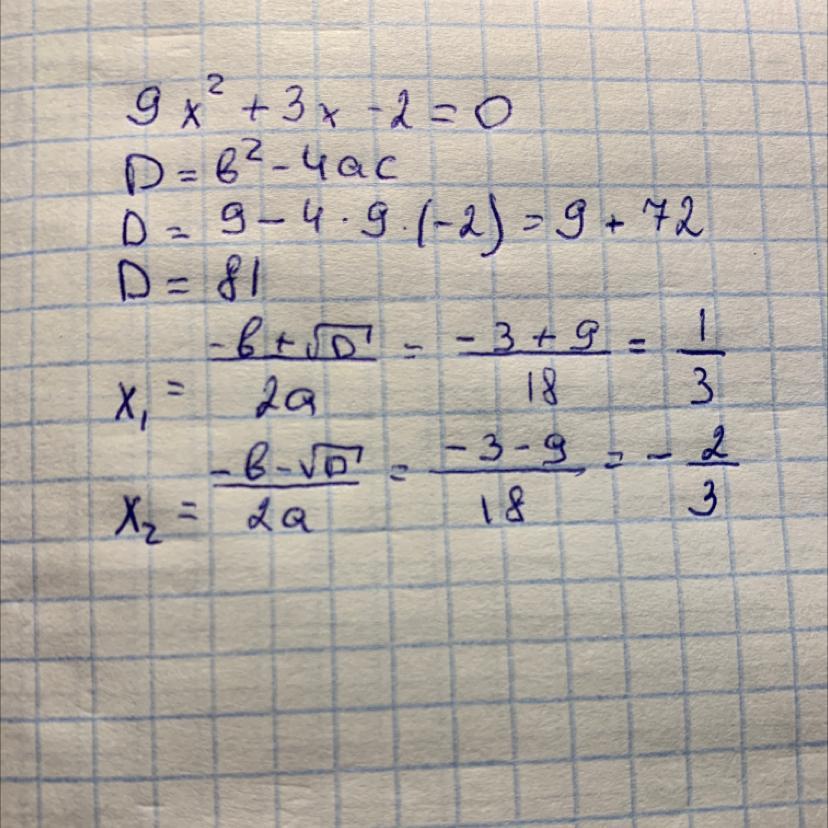 9x² + 3x - 2 = 0
D = b² - 4ac
D = 9 - 4 · 9 · (-2) = 9 + 72
D = 81
x₁ = (-b + √D)/(2a) = (-3 + 9)/18 = 1/3
x₂ = (-b - √D)/(2a) = (-3 - 9)/18 = - 2/3